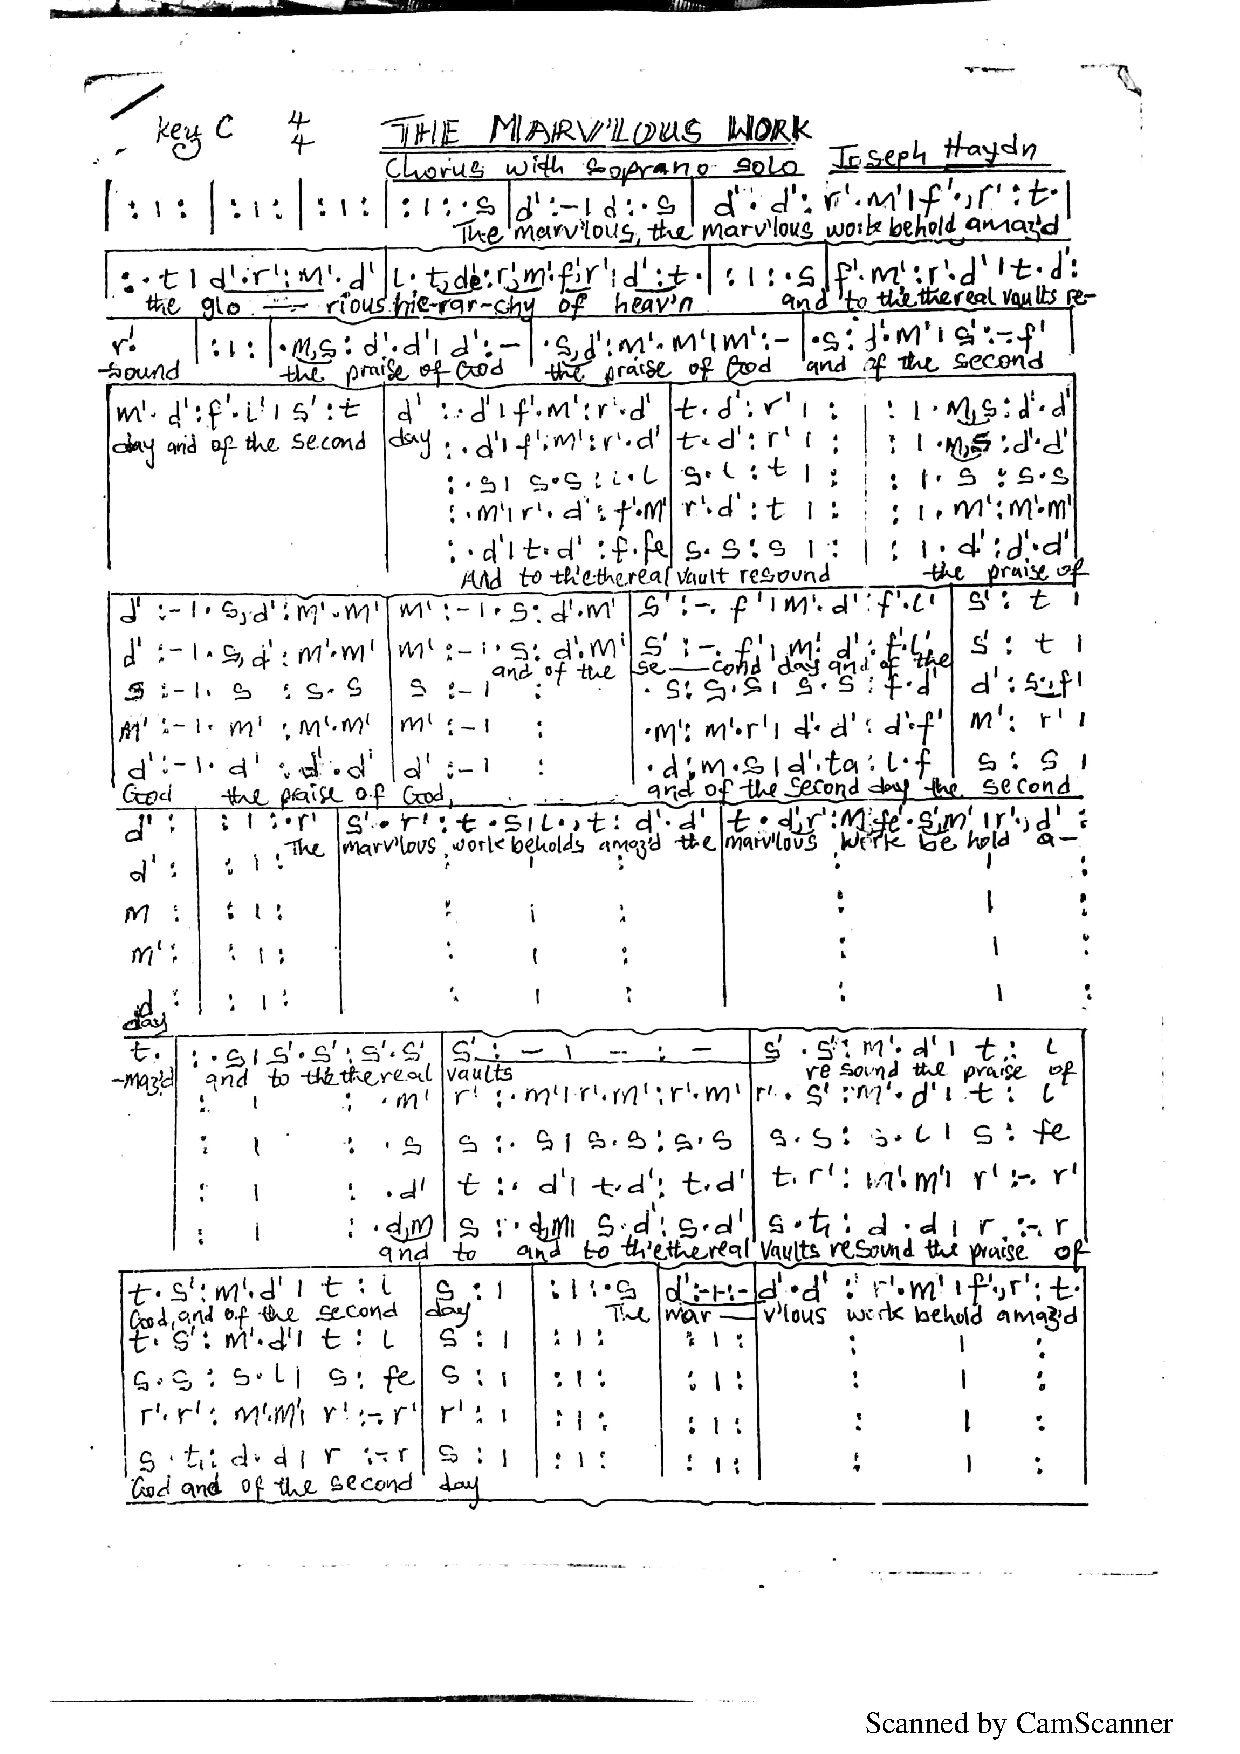 key C 4/4 THE MARV'LOUS WORK
Chorus with Soprano Solo Joseph Haydn
| : | : | : | : | : | : | : | : . s | d' : - | d : . s | d' . d' : r' . m' | f' . , r' : t . |
The marv'lous, the marv'lous work behold amaz'd
: . t | d' . r' : m' . d' | l . t, d' : r', m' . f' r' | d' : t . | : | : . s | f' . m' : r' . d' | t . d' :
the glo — rious hie-rar-chy of heav'n and to th'ethereal vaults re-
r' . | : | : | . m, s : d' . d' | d' : - | . s, d' : m' . m' | m' : - | . s : d' . m' | s' : - f'
-sound the praise of God the praise of God and of the second
m' . d' : f' . l' | s' : t | d' : . d' | f' . m' : r' . d' | t . d' : r' | : | : | . m, s : d' . d'
day and of the second day : . d' | f' . m' : r' . d' | t . d' : r' | : | : | . m, s : d' . d'
: . s | s . s : l . l | s . l : t | : | : | . s : s . s
: . m' | r' . d' : f' . m' | r' . d' : t | : | : | . m' : m' . m'
: . d' | t . d' : f . fe | s . s : s | : | : | . d' : d' . d'
And to th'ethereal vault resound the praise of
d' : - | . s, d' : m' . m' | m' : - | . s : d' . m' | s' : - . f' | m' . d' : f' . l' | s' : t |
d' : - | . s, d' : m' . m' | m' : - | . s : d' . m' | s' : - . f' | m' . d' : f' . l' | s' : t |
and of the se — cond day and of the
s : - | . s : s . s | s : - | : | . s : s . s | s . s : f . d' | d' : s . f |
m' : - | . m' : m' . m' | m' : - | : | . m' : m' . r' | d' . d' : d' . f' | m' : r' |
d' : - | . d' : d' . d' | d' : - | : | . d : m . s | d' . ta : l . f | s : s |
God the praise of God, and of the second day the second
d' : | : | : . r' | s' . r' : t . s | l . , t : d' . d' | t . d', r' : m' fe' . s', m' | r' . , d' :
The marv'lous work beholds amaz'd the marv'lous work be hold a-
d' : | : | : | : | : | : | :
m : | : | : | : | : | : | :
m' : | : | : | : | : | : | :
d : | : | : | : | : | : | :
day
t . | : . s | s' . s' : s' . s' | s' : - | - : - | s' . s' : m' . d' | t . : l
-maz'd and to th'ethereal vaults re sound the praise of
: | : . m' | r' : . m' | r' . m' : r' . m' | r' . s' : m' . d' | t : l'
: | : . s | s : . s | s . s : s . s | s . s : s . l | s : fe
: | : . d' | t : . d' | t . d' : t . d' | t . r' : m' . m' | r' : - . r'
: | : . d, m | s : . d, m | s . d' : s . d' | s . t, : d . d | r : - r
and to and to th'ethereal vaults resound the praise of
t . s' : m' . d' | t : l | s : | : | : . s | d' : - | - : - | d' . d' : r' . m' | f' . , r' : t .
God, and of the second day The mar — v'lous work behold amaz'd
t . s' : m' . d' | t : l | s : | : | : | : | : | : | :
s . s : s . l | s : fe | s : | : | : | : | : | : | :
r' . r' : m' . m' | r' : - . r' | r' : | : | : | : | : | : | :
s . t, : d . d | r : - r | s : | : | : | : | : | : | :
God and of the second day
Scanned by CamScanner